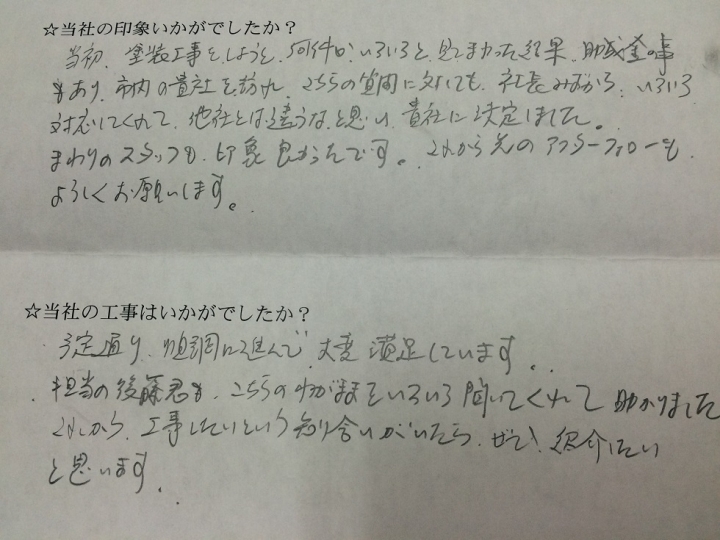 ☆当社の印象いかがでしたか？
当初、塗装工事をしようと、何件か、いろいろと、見てまわった結果、助成金の事
もあり、市内の貴社を訪れ、こちらの質問に対しても、社長みずから、いろいろ
対応してくれて、他社とは違うなと思い、貴社に決定しました。
まわりのスタッフも、印象良かったです。これから先のアフターフォローも、
よろしくお願いします。
☆当社の工事はいかがでしたか？
予定通り、順調に進んで、大変満足しています。
担当の後藤君も、こちらのわがままをいろいろ聞いてくれて助かりました
これから、工事したいという知り合いがいたら、ぜひ、紹介したい
と思います。